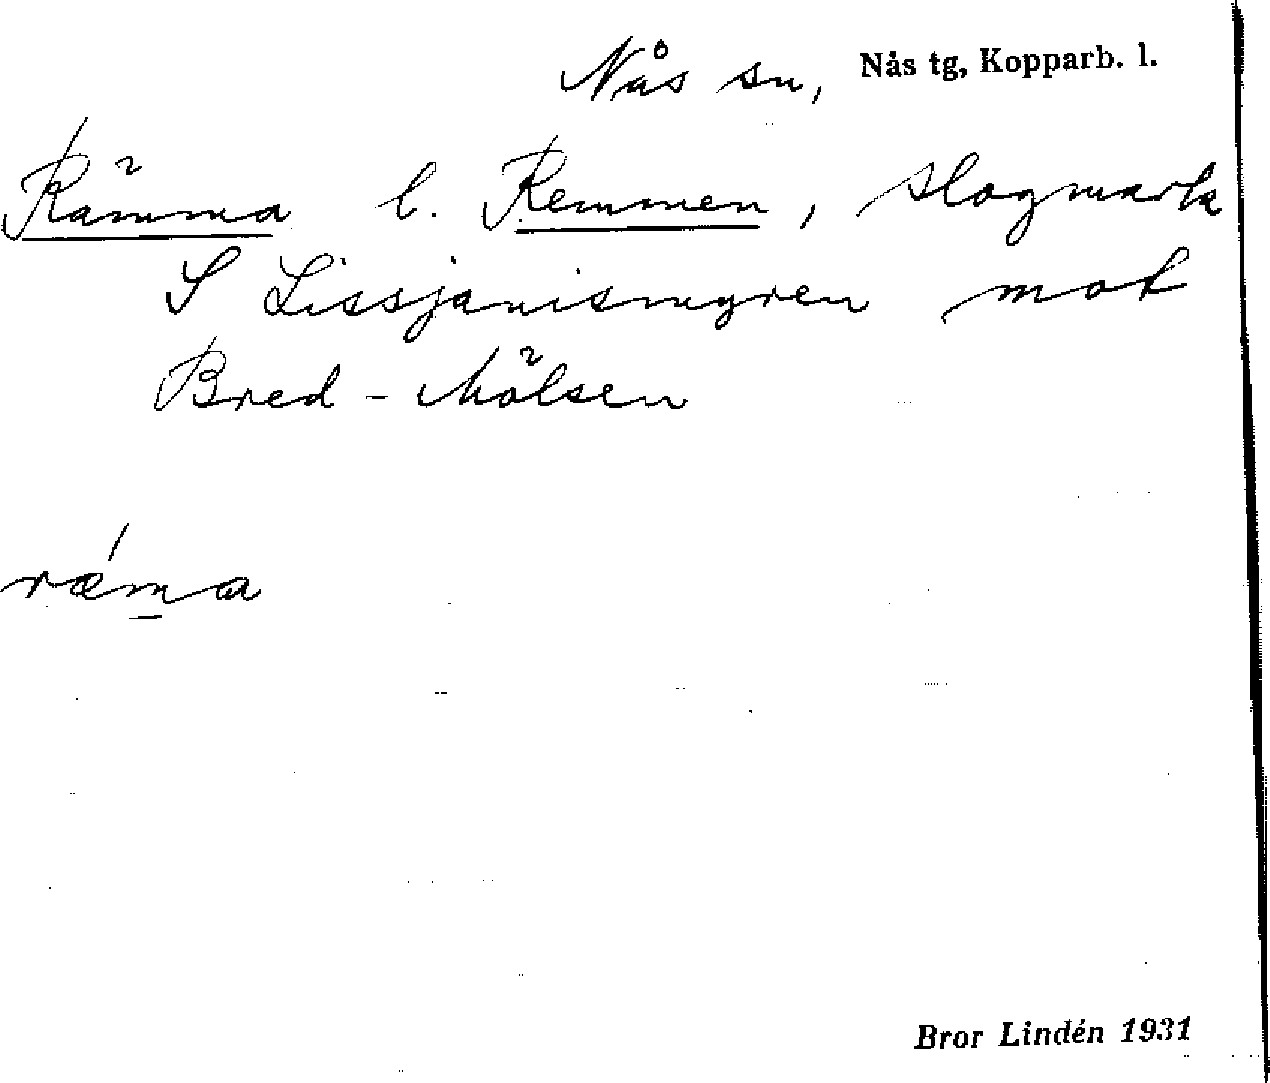 Nås sn, Nås tg, Kopparb. l.
Rämma l. Remmen, slogmark
S Lissjanismyren mot
Bred-Mölsen
rǽma
Bror Lindén 1931